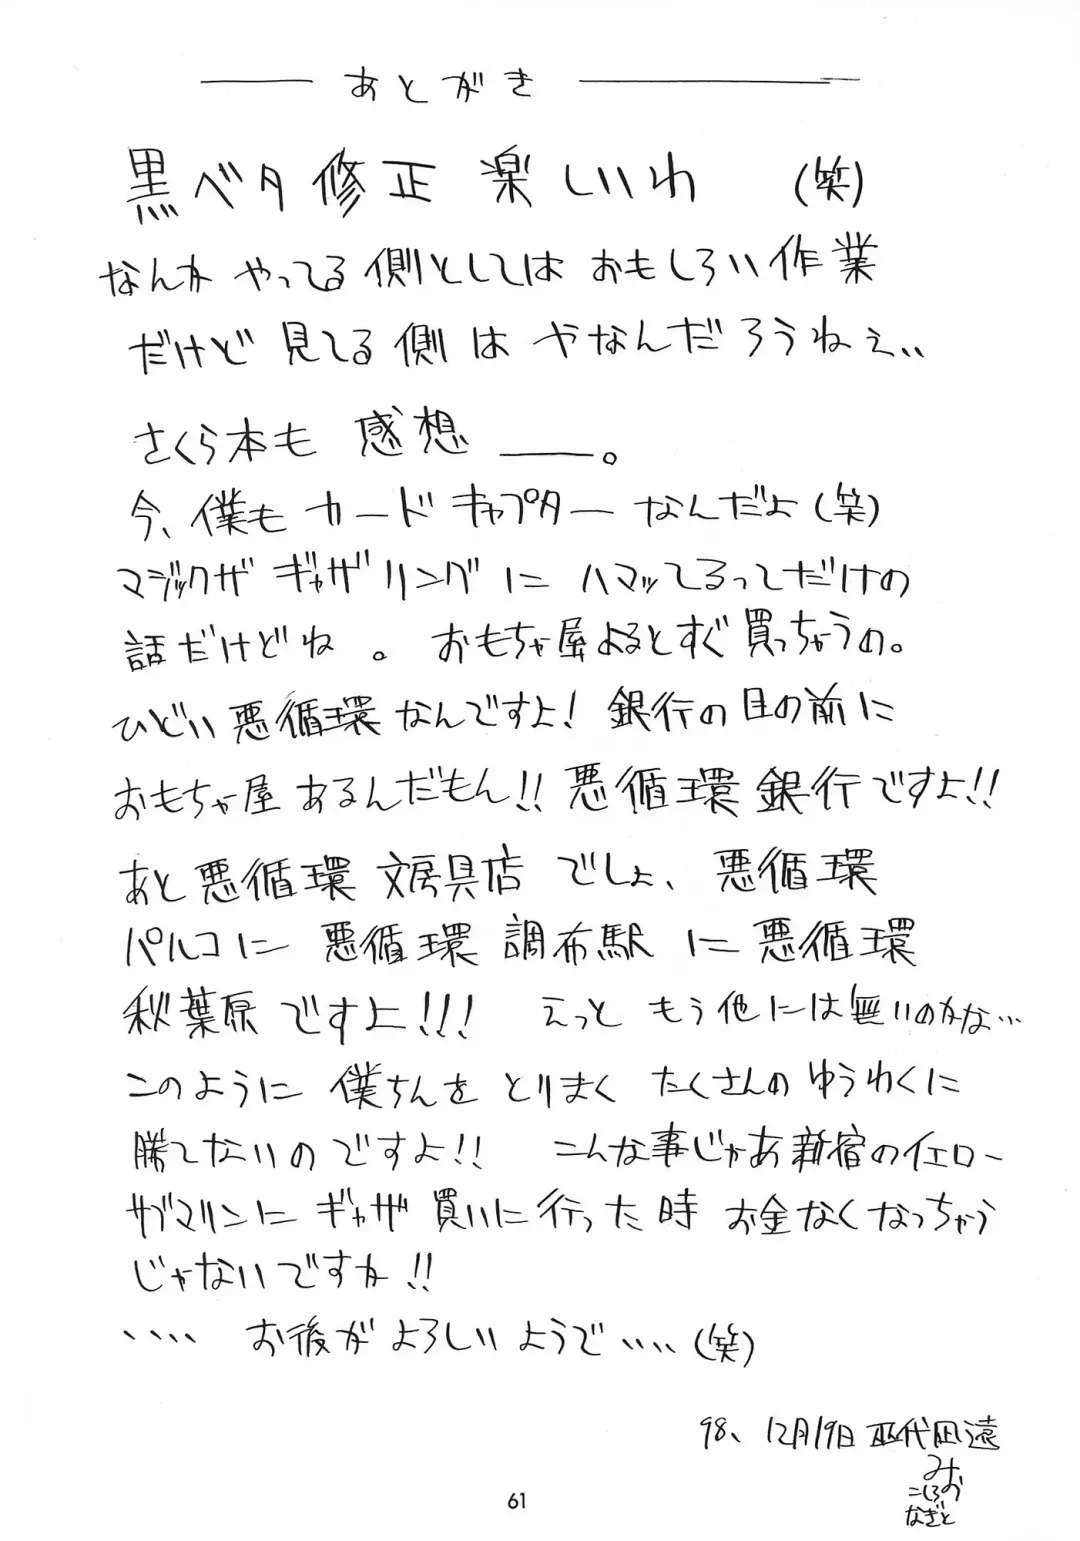 あとがき
黒ベタ修正 楽しいわ (笑)
なんか やってる側としては おもしろい作業
だけど 見てる側は やなんだろうねぇ..
さくら本も 感想 ―――。
今、僕も カードキャプター なんだよ(笑)
マジックザ ギャザリングに ハマッてるってだけの
話だけどね 。 おもちゃ屋よるとすぐ買っちゃうの。
ひどい悪循環なんですよ! 銀行の目の前に
おもちゃ屋あるんだもん!! 悪循環銀行ですよ!!
あと悪循環 文房具店 でしょ、悪循環
パルコに 悪循環 調布駅に 悪循環
秋葉原 ですよ!!! えっと もう他には無いのかな…
このように 僕ちんを とりまく たくさんの ゆうわくに
勝てないのですよ!! こんな事じゃあ新宿のイエロー
サブマリンに ギャザ 買いに行った時 お金なくなっちゃう
じゃないですか!!
、、、、 お後が よろしいようで、、、、(笑)
98、12月19日 巫代凪遠
みお
こしろ
なぎと
61